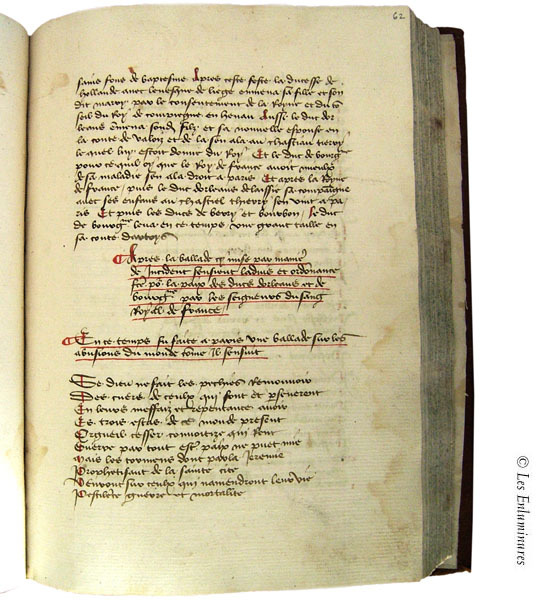 62
sains fons de baptesme Apres ceste feste la ducesse de
hollande avec levesque de liege enmena sa fille et son
dit mary par le consentement de la Royne et du
du Roy de compiegne en henau Aussi le duc dor
leans enmena son filz et sa nouvelle espouse en
la conte de valois et de la son ala au chastiau tierry
lequel luy estoit donne du Roy Et le duc de bourg
pour ce quil oy que le Roy de france avoit
de sa maladie son ala droit a paris Et apres la Royne
de france puis le duc dorleans delaissie sa compaigne
avec ses enfans au chastiel thierry son vint a pa
ris Et puis les ducs de berry et bourbon le duc
de bourg leva en ce temps une grant taille en
sa conte dartois
Apres la ballade cy mise par manie
de Incident sensuient ladvis et ordonnance
fte po la paix des ducs dorleans et de
bourg par les seigneurs du sang
Royal de france
En ce temps fu faite a paris une ballade sur les
abusions du monde come il sensuit
Se dieu ne fait les pechies
Des cuers de ceulx qui font et
En leurs meffais et repentance avoir
Les trois estas de ce monde present
Orgueil cesser convoitise qui
Guerre par tout est paix ne puet
Mais les tormens dont parla Jeremie
Prophetisant de la sainte cite
Venront sur ceulx qui namendront leur vie
Pestilece guerre et mortalite
© Les Enluminures